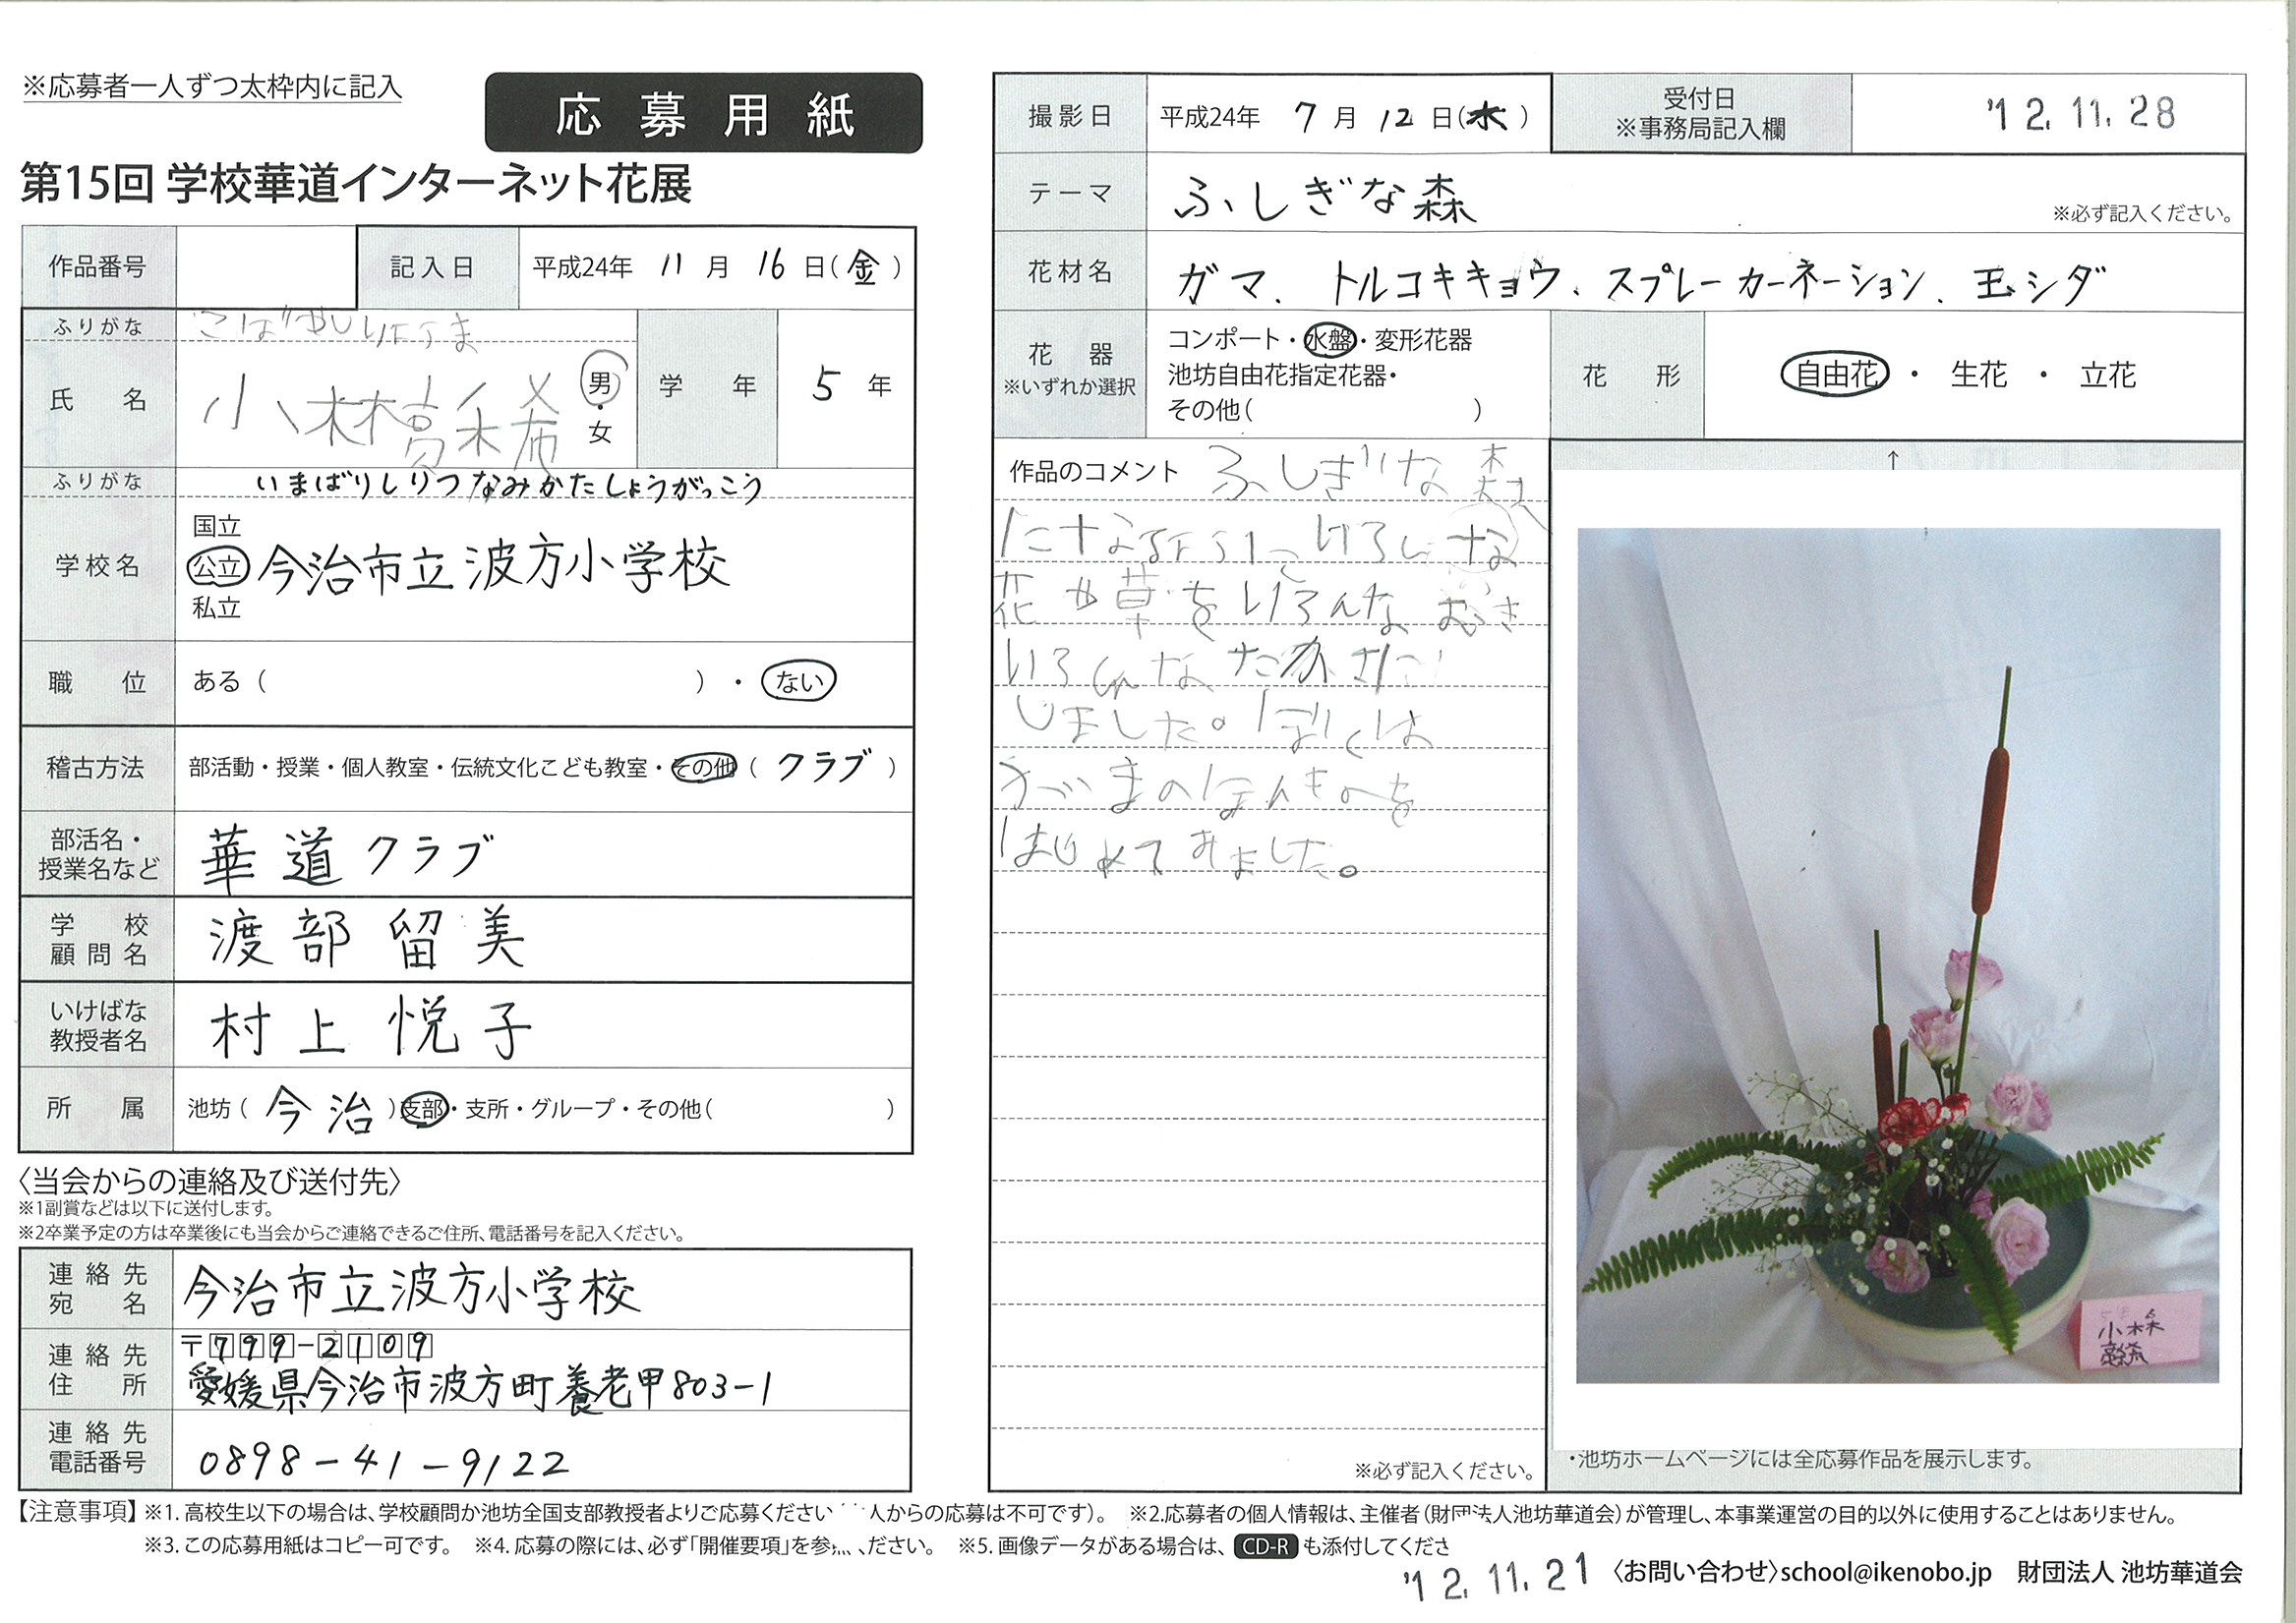 ※応募者一人ずつ太枠内に記入
応募用紙
第15回 学校華道インターネット花展
作品番号
記入日 平成24年 11月 16日(金)
ふりがな
氏名 小林 男・女
学年 5年
ふりがな いまばりしりつなみかたしょうがっこう
学校名 国立 公立 私立 今治市立波方小学校
職位 ある( )・ない
稽古方法 部活動・授業・個人教室・伝統文化こども教室・その他(クラブ)
部活名・授業名など 華道クラブ
学校顧問名 渡部留美
いけばな教授者名 村上悦子
所属 池坊(今治)支部・支所・グループ・その他( )
〈当会からの連絡及び送付先〉
※1副賞などは以下に送付します。
※2卒業予定の方は卒業後にも当会からご連絡できるご住所、電話番号を記入ください。
連絡先宛名 今治市立波方小学校
連絡先住所 〒799-2109
愛媛県今治市波方町養老甲803-1
連絡先電話番号 0898-41-9122
撮影日 平成24年 7月 12日(木)
受付日 ※事務局記入欄 '12.11.28
テーマ ふしぎな森
※必ず記入ください。
花材名 ガマ、トルコキキョウ、スプレーカーネーション、玉シダ
花器 ※いずれか選択
コンポート・水盤・変形花器
池坊自由花指定花器・
その他( )
花形 自由花・生花・立花
↑
作品のコメント ふしぎな森
花や草をいろんなむき
いろんなたかさに
しました。ぼくは
はじめてみました。
※必ず記入ください。
小林
・池坊ホームページには全応募作品を展示します。
【注意事項】※1.高校生以下の場合は、学校顧問か池坊全国支部教授者よりご応募ください 人からの応募は不可です)。 ※2.応募者の個人情報は、主催者(財団法人池坊華道会)が管理し、本事業運営の目的以外に使用することはありません。
※3.この応募用紙はコピー可です。 ※4.応募の際には、必ず「開催要項」を参 ください。 ※5.画像データがある場合は、CD-Rも添付してくださ
'12.11.21 〈お問い合わせ〉school@ikenobo.jp 財団法人 池坊華道会